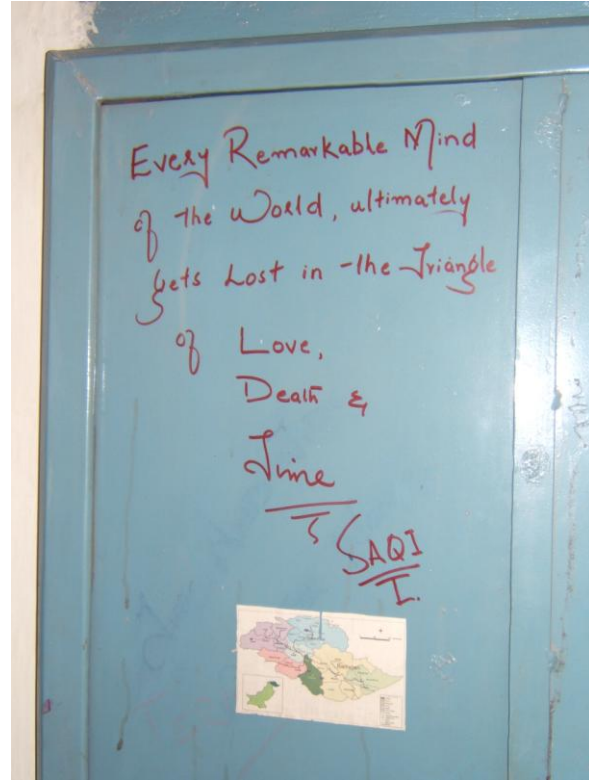 Every Remarkable Mind
of the World, ultimately
gets Lost in the Triangle
of Love,
Death &
Time
SAQI